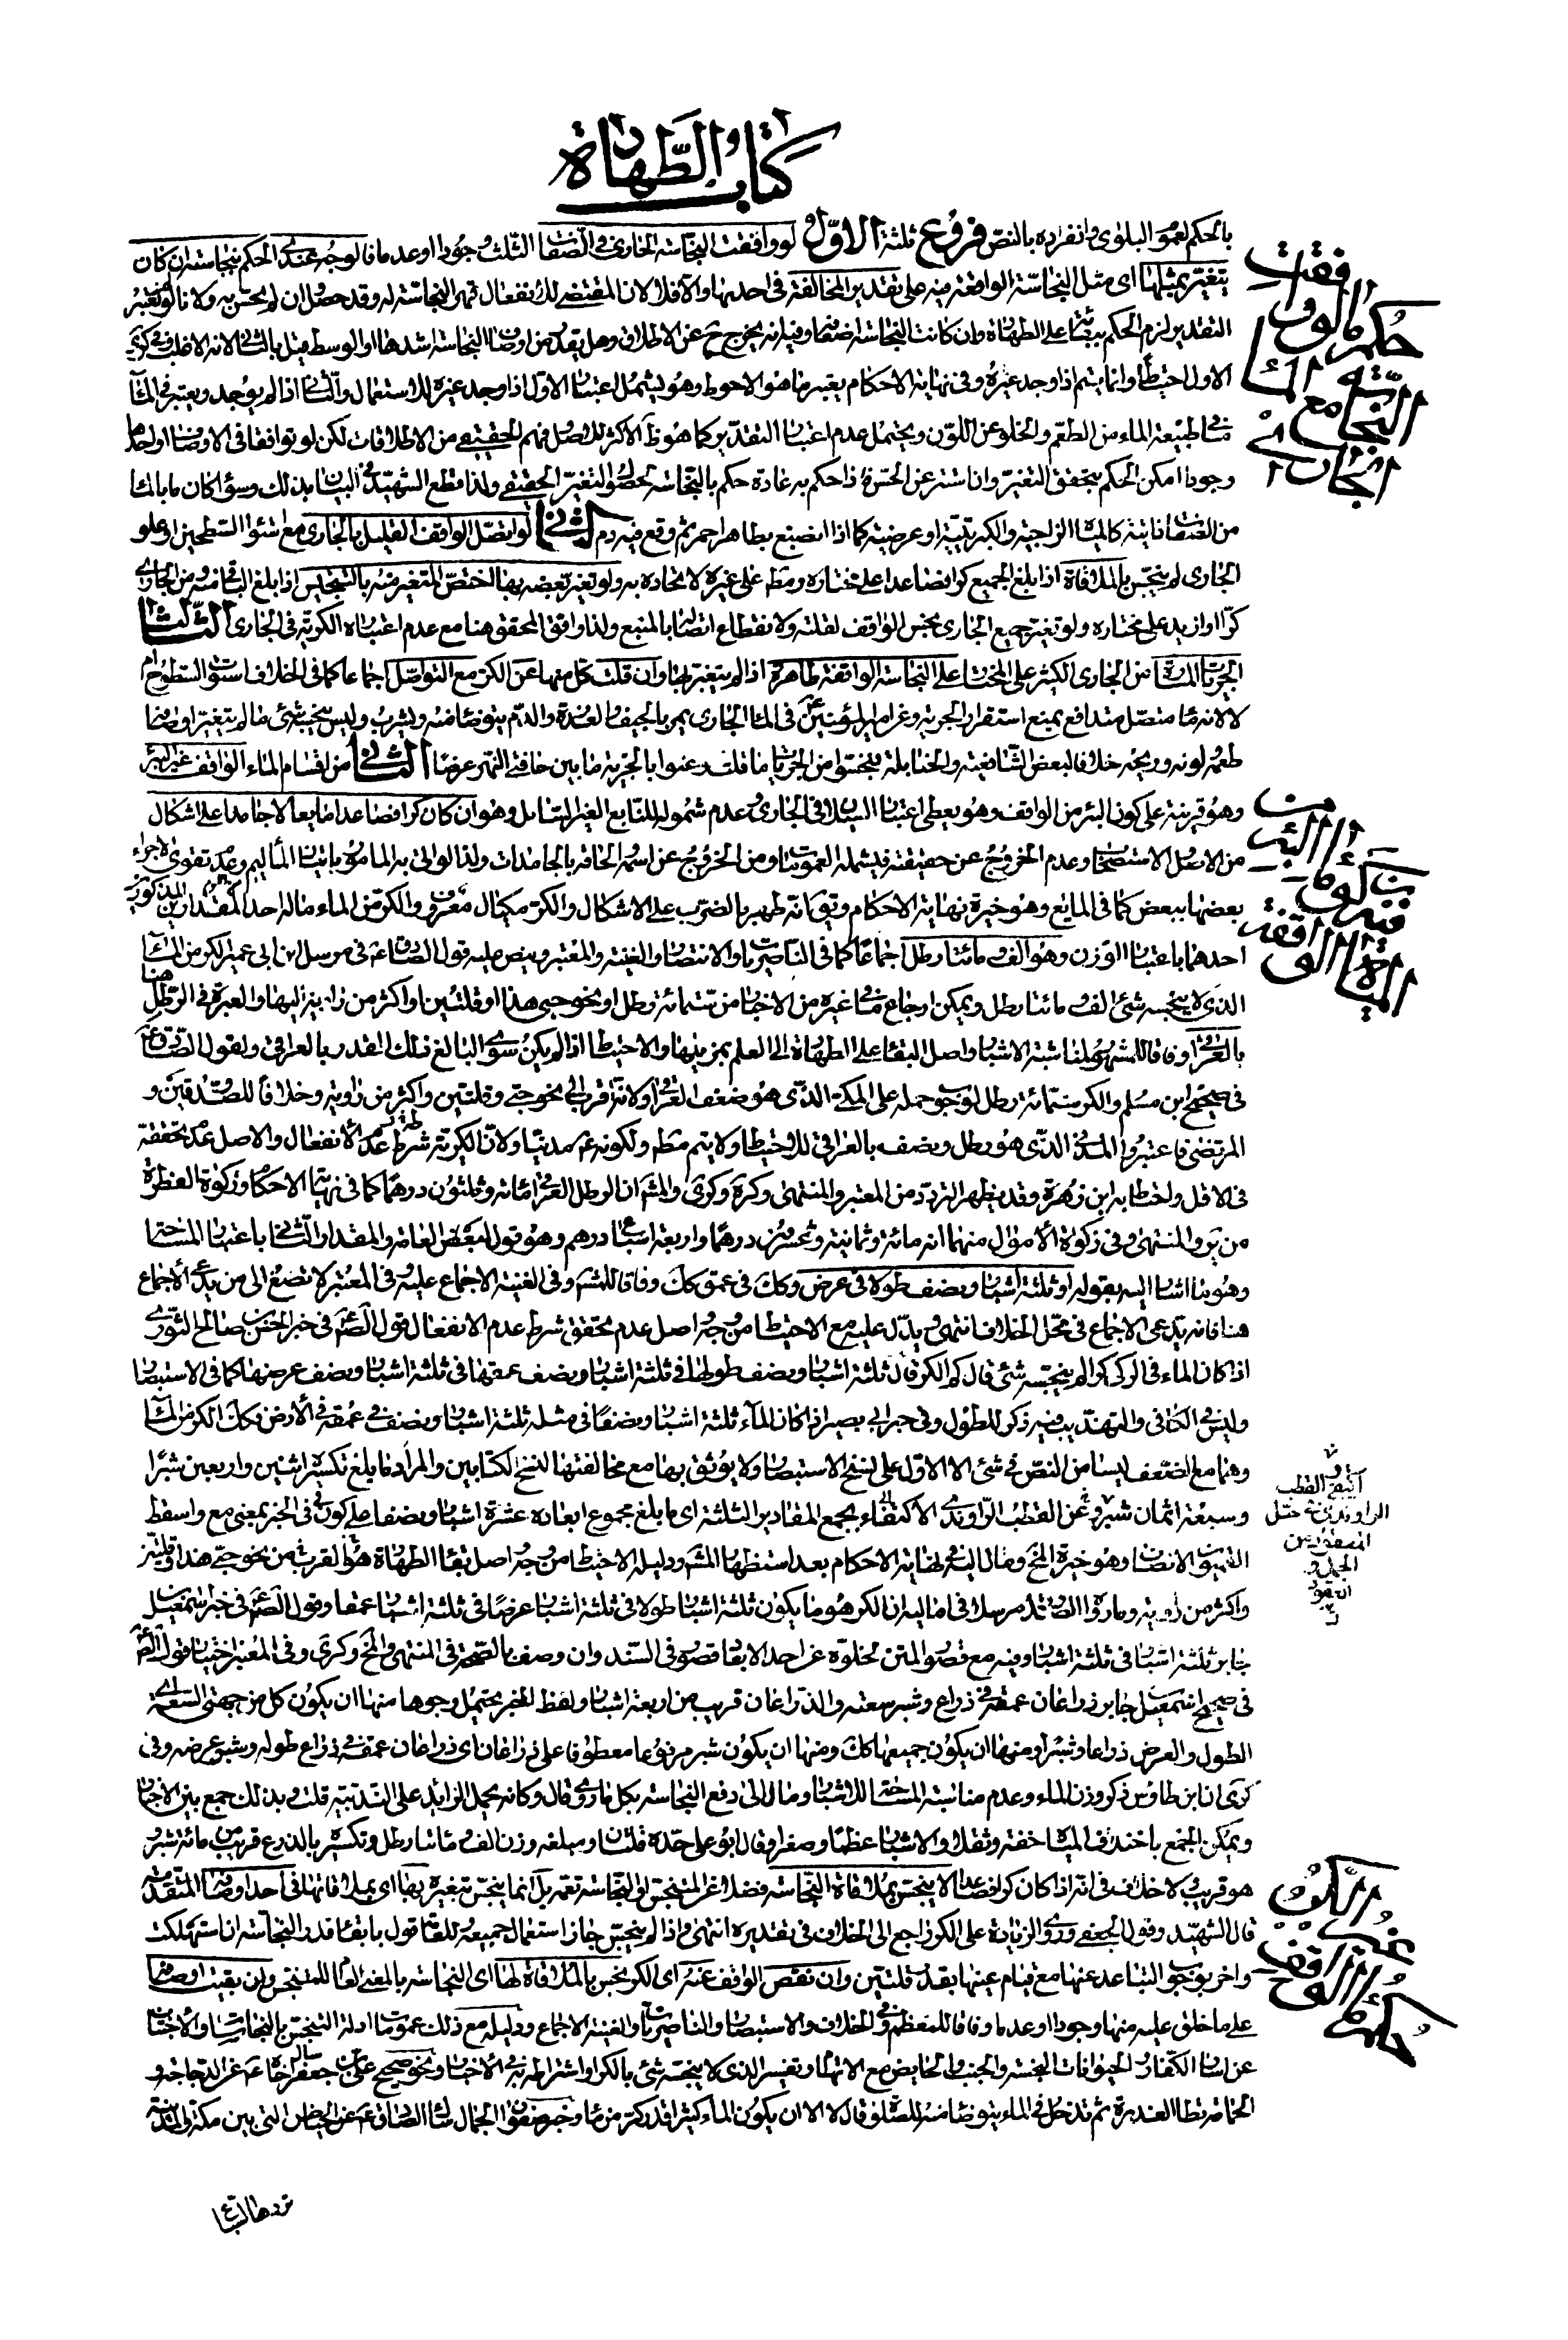 كتاب الطهارة
بالحكم لعموم البلوى وانفراده بالنص فروع ثلثة الاول لو وافقت النجاسة الجارى فى الصفات الثلث وجودا او عدما فالوجه عندى الحكم بنجاسته ان كان
يتغير بمثلها اى مثل النجاسة الواقعة فيه على تقدير المخالفة فى احديها والا فلا لان المقتضى للانفعال قهر النجاسة له وقد حصل وان لم يحس به ولانا لو لم نعتبر
التقدير لزم الحكم ببقائه على الطهارة وان كانت النجاسة اضعافه وفيه انه يخرج ح عن الاطلاق وهل يقدر من اوصاف النجاسة اشدها او الوسط قيل بالثانى لانه الاغلب وفى كرى
الاول احتياطا وانما يتم اذا وجد غيره وفى نهاية الاحكام يعتبر ما هو الاحوط وهو يشمل اعتبار الاول اذا وجد غيره للاستعمال والثانى اذا لم يوجد ويعتبر فى الماء
طبيعة الماء من الطعم والخلو عن اللون ويحتمل عدم اعتبار التقدير كما هو ظ الاكثر للاصل وفهم الحقيقى من الاطلاقات لكن لو توافقا فى الاوصاف او احدها
وجودا امكن الحكم بتحقق التغير وان استتر عن الحس فاذا حكم به عادة حكم بالنجاسة لحصول التغير الحقيقى ولذا قطع الشهيد فى البيان بذلك وسواء كان ما بالماء
من الصفات ذاتية كالمياه الزاجية والكبريتية او عرضية كما اذا انصبغ بطاهر احمر ثم وقع فيه دم الثانى لو اتصل الواقف القليل بالجارى مع استواء السطحين او علو
الجارى لم ينجس بالملاقاة اذا بلغ الجميع كرا فصاعدا على مختاره ومط على غيره لاتحاده به ولو تغير بعضه بها اختص المتغير منه بالتنجيس اذا بلغ الباقى منه ومن الجارى
كرا او ازيد على مختاره ولو تغير جميع الجارى نجس الواقف لقلته ولانقطاع اتصاله بالمنبع ولذا وافق المحقق هنا مع عدم اعتباره الكرية فى الجارى الثالث
الجريات المارة من الجارى الكثير على المختار على النجاسة الواقفة طاهرة اذا لم يتغير بها وان قلت كل منها عن الكر مع التواصل اجماعا كما فى الخلاف استوت السطوح ام
لا لانه ماء متصل متدافع يمنع استقرار الجرية وعن امير المؤمنين ع فى الماء الجارى يمر بالجيف والعذرة والدم يتوضأ منه ويشرب وليس ينجسه شئ ما لم يتغير اوصافه
طعمه لونه وريحه خلافا لبعض الشافعية والحنابلة فنجسوا من الجريات ما قلت وعنوا بالجرية ما بين حافتى النهر عرضا الثانى من اقسام الماء الواقف غير البئر
وهو قرينة على كون البئر من الواقف وهو يعطى اعتبار السيلان فى الجارى وعدم شموله للنابع الغير السائل وهو ان كان كرا فصاعدا مايعا لا جامدا على اشكال
من الاصل الاستصحاب وعدم الخروج عن حقيقته فيشمله العمومات ومن الخروج عن اسمه الحاقه بالجامدات ولذا لو اتى به المامور باتيان الماء لم يمتثل وعدم تقوى اجزاء
بعضها ببعض كما فى المايع وهو خيرة نهاية الاحكام وتيقن انه طهير بالضرب على الاشكال والكر مكيال معروف والكر من الماء ما له احد المقدارين المذكورين
احدهما باعتبار الوزن وهو الف ومائتا رطل اجماعا كما فى الناصريات والانتصار والغنية والمعتبر وينص عليه قول الصادق ع فى مرسل ابن ابى عمير الكر من الماء
الذى لا ينجسه شئ الف ومائتا رطل ويمكن ارجاع ما فى غيره من الاخبار من ستمائة رطل او نحو حبى هذا او قلتين او اكثر من راوية اليها والعبرة فى الرطل هنا
بالعراقى وفاقا للمشهور لمناسبة الاشبار واصل البقاء على الطهارة الى العلم بمزيلها والاحتياط اذا لم يكن سوى البالغ ذلك القدر بالعراقى ولقول الصادق ع
فى صحيح ابن مسلم والكر ستمائة رطل لوجوب حمله على المكى الذى هو ضعف العراقى ولانه اقرب الى نحو حبى وقلتين واكثر من راوية وخلافا للصدوقين و
المرتضى فاعتبروا المدنى الذى هو رطل ونصف بالعراقى للاحتياط ولا يتم مط ولكونه ع مدنيا ولان الكرية شرط عدم الانفعال والاصل عدم تحققه
فى الاقل واحتاط به ابن زهرة وقد يظهر التردد من المعتبر والمنتهى وكرة وكرى والمش ان الرطل العراقى مائة وثلثون درهما كما فى نهاية الاحكام وزكوة الفطرة
من ير والمنتهى وفى زكوة الاموال منهما انه مائة وثمانية وعشرون درهما واربعة اسباع درهم وهو قول بعض العامة والمقدار الثانى باعتبار المساحة
وهو ما اشار اليه بقوله او ثلثة اشبار ونصف طولا فى عرض كك فى عمق كك وفاقا للمش وفى الغنية الاجماع عليه وفى المعتبر لا تصغ الى من يدعى الاجماع
هنا فانه يدعى الاجماع فى محل الخلاف انتهى ويدل عليه مع الاحتياط من وجه واصل عدم تحقق شرط عدم الانفعال قول الصادق ع فى خبر الحسن بن صالح الثورى
اذا كان الماء فى الركى كرا لم ينجسه شئ قال كم الكر قال ثلثة اشبار ونصف طولها فى ثلثة اشبار ونصف عمقها فى ثلثة اشبار ونصف عرضها كما فى الاستبصار
وليس فى الكافى والتهذيب فيه ذكر للطول وفى خبر ابى بصير اذا كان الماء ثلثة اشبار ونصفا فى مثله ثلثة اشبار ونصف فى عمقه فى الارض فذلك الكر من الماء
وهما مع الضعف ليسا من النص فى شئ الا الاول على نسخ الاستبصار ولا يوثق بها مع مخالفتها لنسخ الكتابين والمراد ما يبلغ تكسيره اثنين واربعين شبرا
وسبعة اثمان شبر وعن القطب الراوندى الاكتفاء بجمع المقادير الثلثة اى ما بلغ مجموع ابعاده عشرة اشبار ونصفا على كون فى فى الخبر بمعنى مع واسقط
القميون الانصاف وهو خيرة المخ ومال اليه فى نهاية الاحكام بعد استظهار المش ودليله الاحتياط من وجه واصل بقاء الطهارة وهو القرب من نحو حبى هذا وقلتين
واكثر من راوية وما رواه الصدوق مرسلا فى اماليه ان الكر هو ما يكون ثلثة اشبار طولا فى ثلثة اشبار عرضا فى ثلثة اشبار عمقا وقول الصادق ع فى خبر اسمعيل
بن جابر ثلثة اشبار فى ثلثة اشبار وفيه مع قصور المتن لخلوه عن احد الابعاد قصور فى السند وان وصف بالصحة فى المنتهى والمخ وكرى وفى المعتبر اختيار قول الصادق ع
فى صحيح اسمعيل بن جابر ذراعان عمقه فى ذراع وشبر سعته والذراعان قريب من اربعة اشبار ولفظ الخبر يحتمل وجوها منها ان يكون كل من جهتى السعة اى
الطول والعرض ذراعا وشبرا ومنها ان يكون جميعها كك ومنها ان يكون شبر مرفوعا معطوفا على ذراعان اى ذراعان عمقه فى ذراع طوله وشبر عرضه وفى
كرى ان ابن طاوس ذكر وزن الماء وعدم مناسبة المساحة للاشبار ومال الى دفع النجاسة بكل ما روى قال وكانه يحمل الزايد على الندبية قلت وبذلك جمع بين الاخبار
ويمكن الجمع باختلاف المياه خفة وثقلا والاشبار عظما وصغرا وقال ابو على حده قلتان ومبلغه وزن الف ومائتا رطل وتكسيره بالذرع قريب من مائة شبر و
هو قريب ولا خلاف فى انه اذا كان كرا فصاعدا لا ينجس بملاقاة النجاسة فضلا عن المتنجس او النجاسة تعمه بل انما ينجس بتغيره بها اى بملاقاتها فى احد اوصافه المتقدمة
قال الشهيد وقول الجعفى وروى الزيادة على الكر راجع الى الخلاف فى تقديره انتهى واذا لم ينجس جاز استعمال جميعه وللعامة قول بابقاء قدر النجاسة ان استهلكت
واخر بوجوب التباعد عنها مع قيام عينها بقدر قلتين وان نقص الواقف عنه اى الكر نجس بالملاقاة لها اى النجاسة بالمعنى العام للمتنجس وان بقيت اوصافه
على ما خلق عليه منها وجودا او عدما وفاقا للمعظم وفى الخلاف والاستبصار والناصريات والغنية الاجماع ودليله مع ذلك عمومات ادلة التنجس بالنجاسات والاجتناب
عن اسار الكفار والحيوانات النجسة والجنب والحايض مع الاتهام وتفسير الذى لا ينجسه شئ بالكر او اشتراطه به فى الاخبار ونحو صحيح على بن جعفر سال اخاه ع عن الدجاجة و
الحمامة تطا العذرة ثم تدخل فى الماء يتوضا منه للصلوة قال لا الا ان يكون الماء كثيرا قدر كر من ماء وخبر صفوان الجمال سال الصادق ع عن الحياض التى بين مكة والمدينة
تردها السباع
حكم ما لو وافقت النجاسة الماء الجارى
فى ماء البئر من كونه من المياه الواقفة
حكم الماء الواقف غير البئر